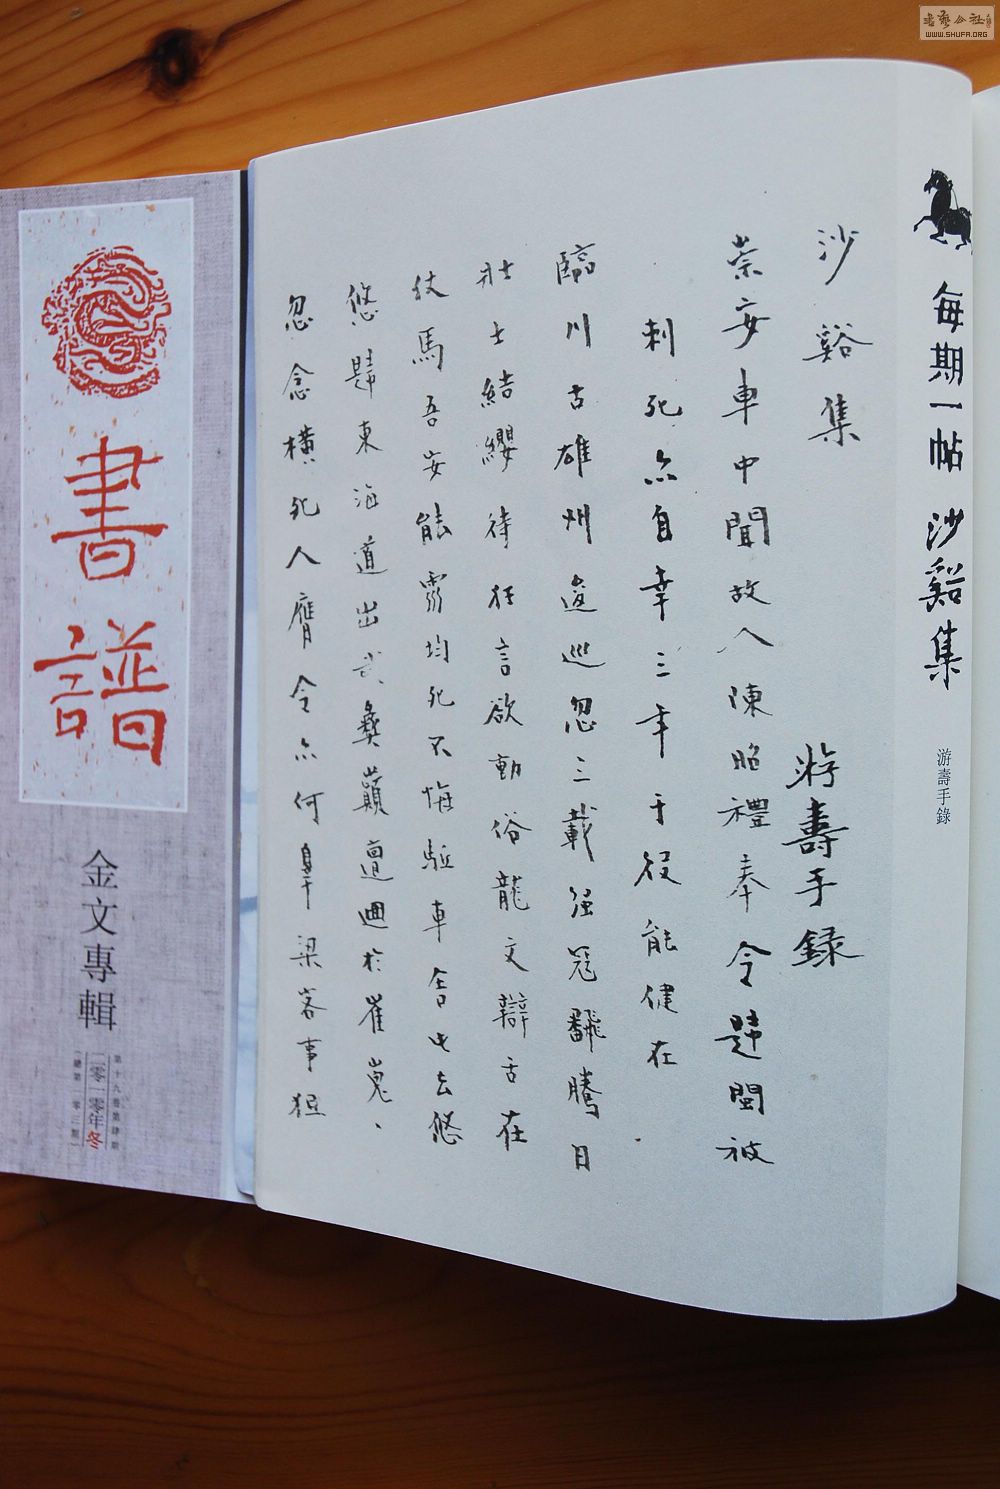 書藝公社
WWW.SHUFA.ORG
每期一帖 沙谿集
游壽手錄
沙谿集
游壽手錄
崇安車中聞故人陳昭禮奉令歸閩被
刺死亦自幸三年于役能健在
臨川古雄州逡巡忽三載强寇飜騰日
壯士結纓待狂言欲動俗龍文辯舌在
仗馬吾安能靈均死不悔驅車舍此去悠
悠歸東海道出武彝巔邅迴於崔嵬、
忽念橫死人膺令亦何辜梁客事狙
書譜
金文專輯
第十九卷第肆期
二零一零年冬
(總第一零三期)